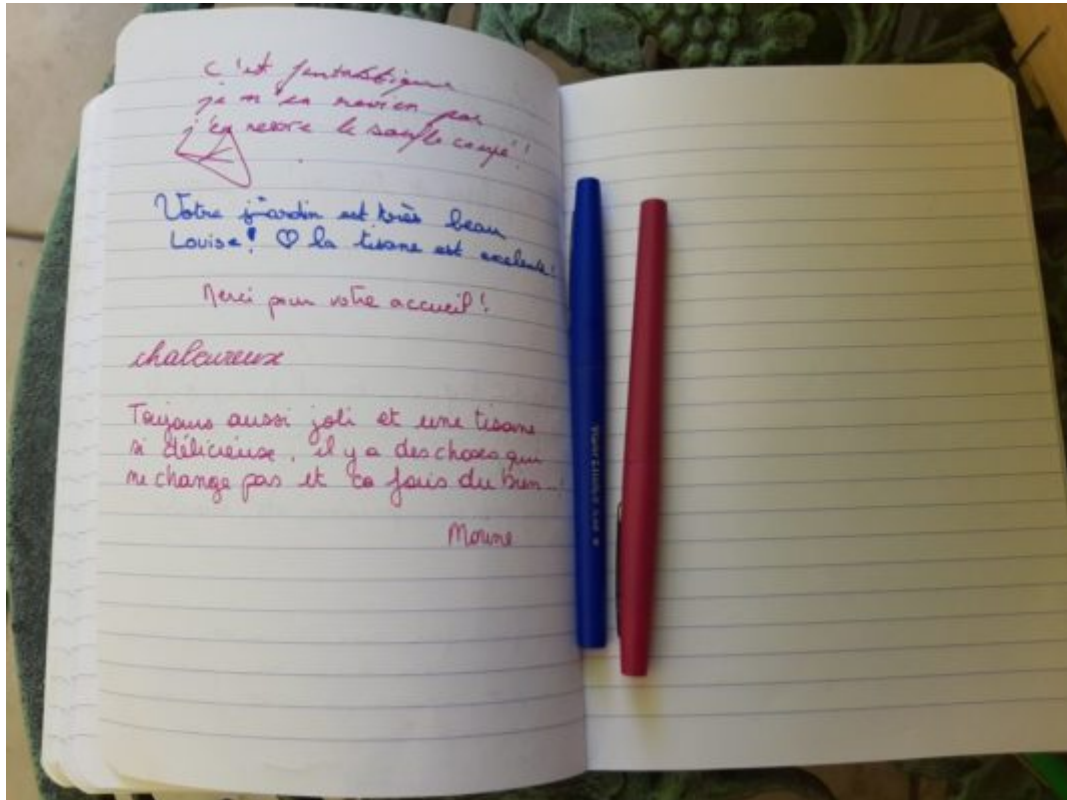 c'est fantastique
je n'en revien pas
j'en reste le souffle coupé!!
Votre jardin est très beau
Louise! ♡ la tisane est excelente!
Merci pour votre accueil!
chaleureux
Toujours aussi joli et une tisane
si délicieuse, il y a des choses qui
ne change pas et ça fais du bien...!